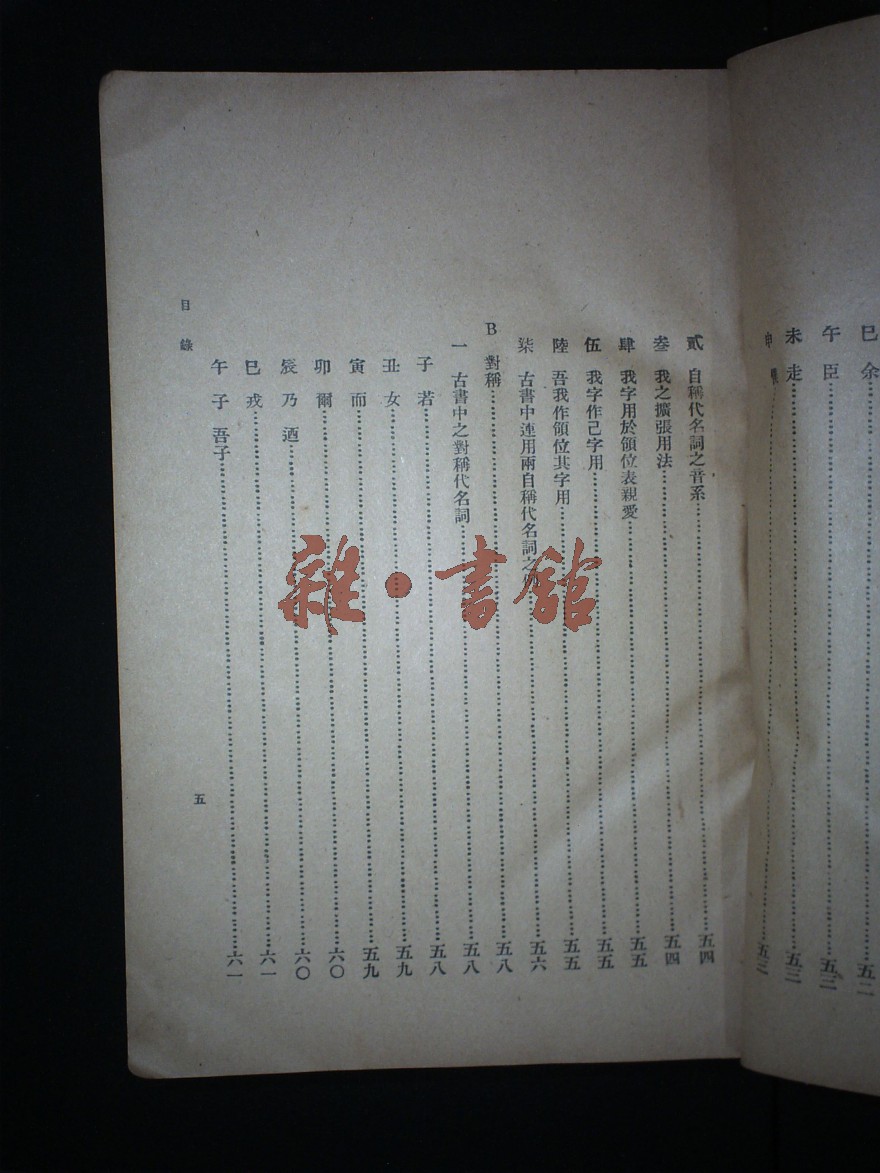 巳 余……五二
午 臣……五三
未 走……五三
申……五三
貳 自稱代名詞之音系……五四
叁 我之擴張用法……五四
肆 我字用於領位表親愛……五五
伍 我字作己字用……五五
陸 吾我作領位其字用……五五
柒 古書中連用兩自稱代名詞之……五六
B 對稱……五八
一 古書中之對稱代名詞……五八
子 若……五八
丑 女……五九
寅 而……五九
卯 爾……六〇
辰 乃 迺……六〇
巳 戎……六一
午 子 吾子……六一
目錄
五
雜·書館